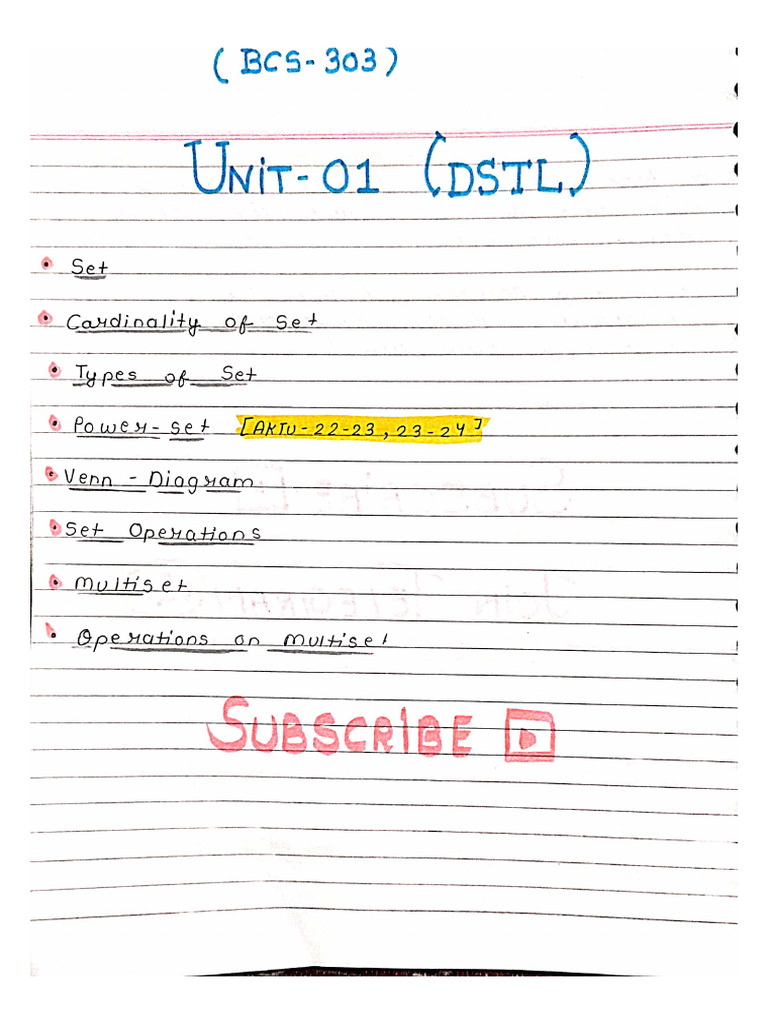 (BCS-303)
UNiT-01 (DSTL)
Set
Cardinality of Set
Types of Set
Power-set [AKTU-22-23, 23-24]
Venn - Diagram
Set Operations
Multiset
Operations on Multiset
SUBSCRIBE